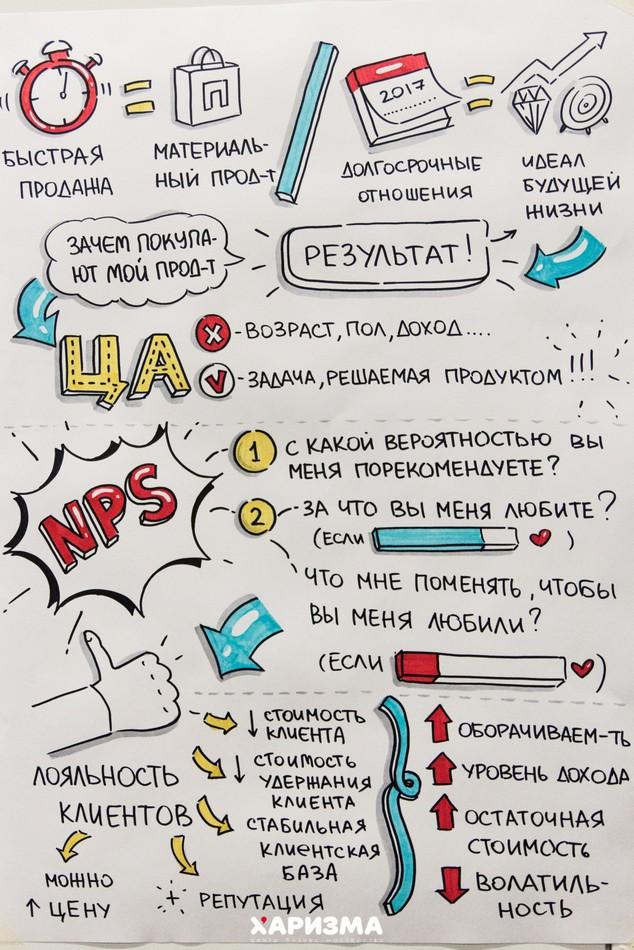 БЫСТРАЯ
ПРОДАЖА
=
П
МАТЕРИАЛЬ-
НЫЙ ПРОД-Т
2017
ДОЛГОСРОЧНЫЕ
ОТНОШЕНИЯ
=
ИДЕАЛ
БУДУЩЕЙ
ЖИЗНИ
ЗАЧЕМ ПОКУПА-
ЮТ МОЙ ПРОД-Т
РЕЗУЛЬТАТ!
ЦА
X - ВОЗРАСТ, ПОЛ, ДОХОД....
V - ЗАДАЧА, РЕШАЕМАЯ ПРОДУКТОМ!!!
NPS
1 С КАКОЙ ВЕРОЯТНОСТЬЮ ВЫ
МЕНЯ ПОРЕКОМЕНДУЕТЕ?
2 ЗА ЧТО ВЫ МЕНЯ ЛЮБИТЕ?
(ЕСЛИ )
ЧТО МНЕ ПОМЕНЯТЬ, ЧТОБЫ
ВЫ МЕНЯ ЛЮБИЛИ?
(ЕСЛИ )
ЛОЯЛЬНОСТЬ
КЛИЕНТОВ
МОЖНО
↑ ЦЕНУ
+ РЕПУТАЦИЯ
↓ СТОИМОСТЬ
КЛИЕНТА
↓ СТОИМОСТЬ
УДЕРЖАНИЯ
КЛИЕНТА
СТАБИЛЬНАЯ
КЛИЕНТСКАЯ
БАЗА
ОБОРАЧИВАЕМ-ТЬ
УРОВЕНЬ ДОХОДА
ОСТАТОЧНАЯ
СТОИМОСТЬ
ВОЛАТИЛЬ-
НОСТЬ
ХАРИЗМА